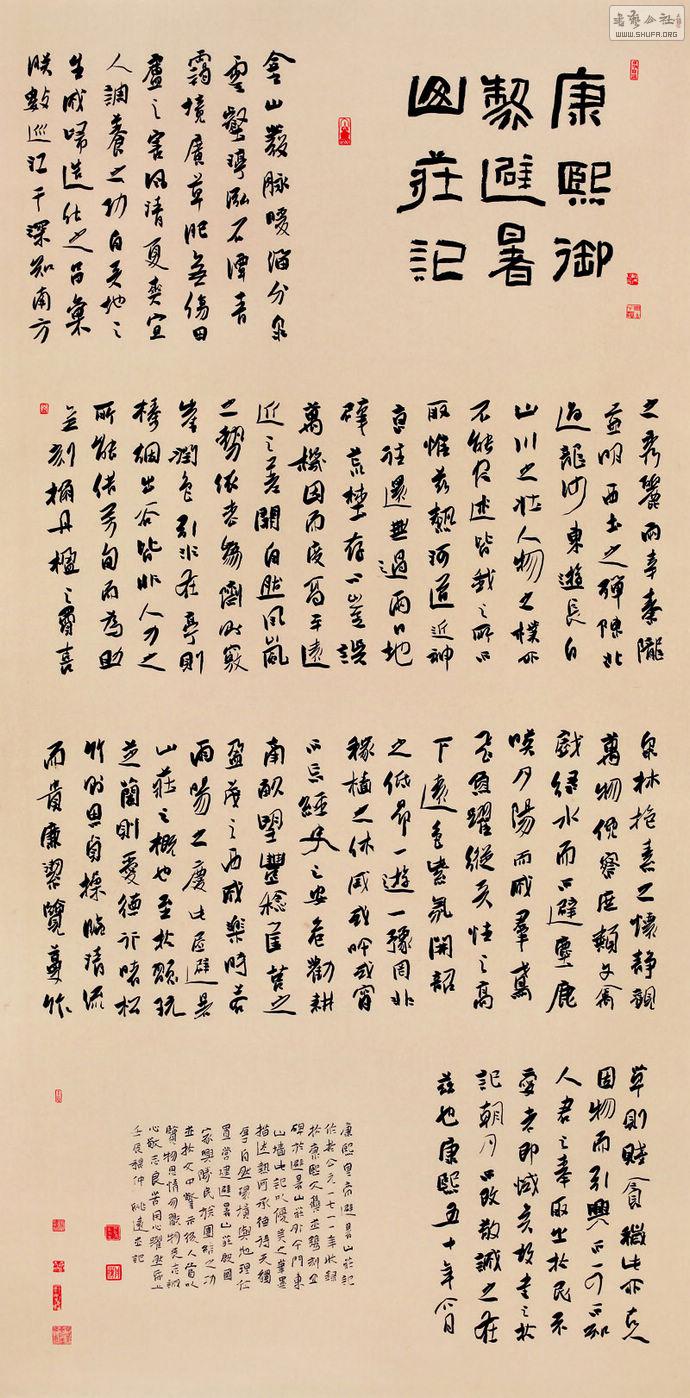 康熙御
製避暑
山莊記
金山發脉暖溜分泉
雲壑渟泓石潭青
靄境廣草肥無傷田
廬之害風清夏爽宜
人調養之功自天地之
生成歸造化之品彙
朕數巡江干深知南方
之秀麗兩幸秦隴
益明西土之殫陳北
過龍沙東遊長白
山川之壯人物之樸亦
不能盡述皆我之所不
取惟茲熱河道近神
京往還無過兩日地
辟荒埜存心豈誤
萬機因而度高平遠
近之差開自然風嵐
之勢依松為齋則竅
崖潤色引水在亭則
榛烟出谷皆非人力之
所能借芳甸而為助
無刻桷丹楹之費喜
泉林抱素之懷靜觀
萬物俯察庶類文禽
戲綠水而不避麀鹿
暎夕陽而成羣鳶
飛魚躍從天性之高
下遠色紫氛開韶
之低昂一遊一豫罔非
稼穡之休戚或旰或宵
不忘經史之安危勸耕
南畝望豐稔筐筥之
盈茂之西成樂時若
雨暘之慶此居避暑
山莊之概也至於頤玩
芝蘭則愛德行睹松
竹則思貞操臨清流
而貴廉潔覽蔓
草則賤貪穢此亦古人
因物而引興不可不知
人君之奉取之於民不
愛者即惑矣故書之於
記朝夕不改敬誠之在
茲也康熙五十年六月
康熙皇帝避暑山莊記
作於公元一七一一年收錄
於康熙文集並鐫刻立
碑於避暑山莊外午門東
山墻此記以優美之筆墨
描述熱河承德得天獨
厚自然環境與地理位
置營建避暑山莊殷國
家興隆民族團結之功
並於文中警示後人當以
覽物思情
WWW.SHUFA.ORG